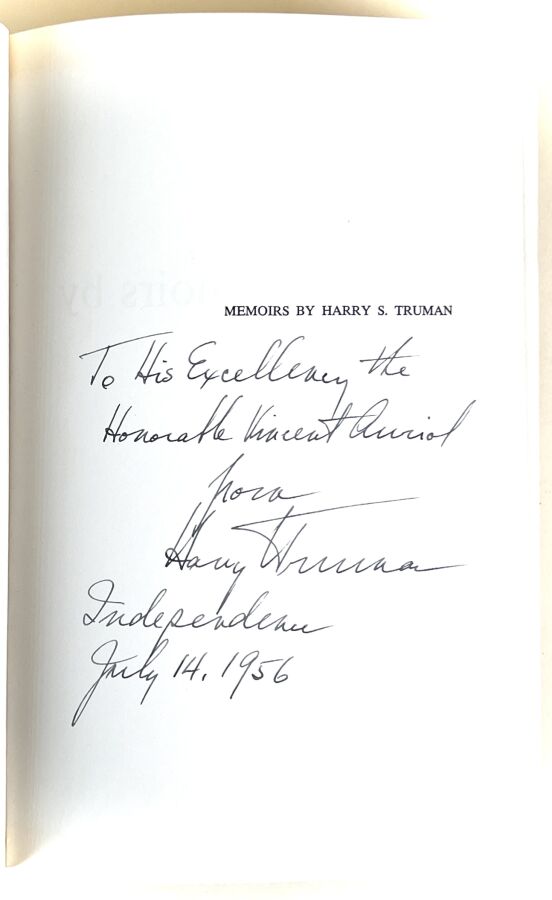 MEMOIRS BY HARRY S. TRUMAN
To His Excellency the
Honorable Vincent Auriol
from
Harry Truman
Independence
July 14, 1956